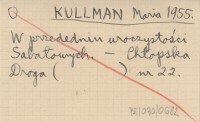 KULLMAN Maria 1955.
W przededniu uroczystości
Sabałowych. – Chłopska
Droga ( ) nr 22.